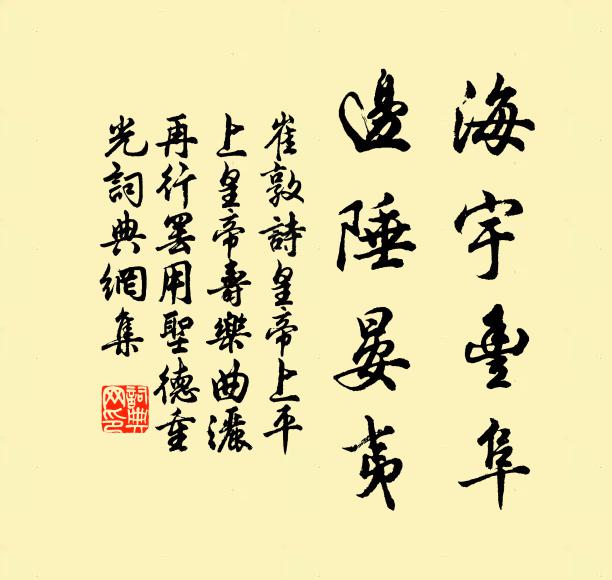 海宇豐阜
邊陲晏夷
崔敦詩皇帝上平
上皇帝壽樂曲灑
再行罷用聖德重
光詞典網集
詞典
网印